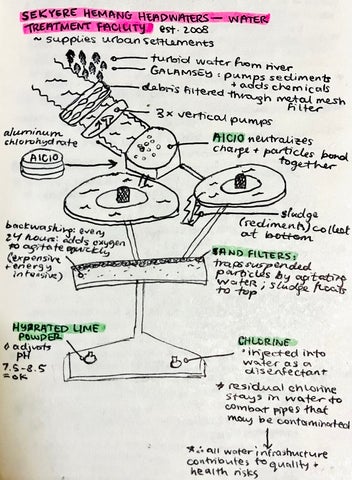 SEKYERE HEMANG HEADWATERS — WATER
TREATMENT FACILITY est. 2008
~ supplies urban settlements
turbid water from river
GALAMSEY: pumps sediments
+ adds chemicals
debris filtered through metal mesh
filter
3x vertical pumps
aluminum
chlorohydrate
AlClO
AlClO neutralizes
charge + particles bond
together
sludge
(sediments) collect
at bottom
backwashing: every
24 hours: adds oxygen
to agitate quickly
(expensive
+ energy
intensive)
SAND FILTERS:
traps suspended
particles by agitating
water; sludge floats
to top
HYDRATED LIME
POWDER
adjusts
pH
7.5-8.5
= ok
CHLORINE
injected into
water as a
disenfectant
residual chlorine
stays in water to
combat pipes that
may be contaminated
*∴ all water infrastructure
contributes to quality +
health risks